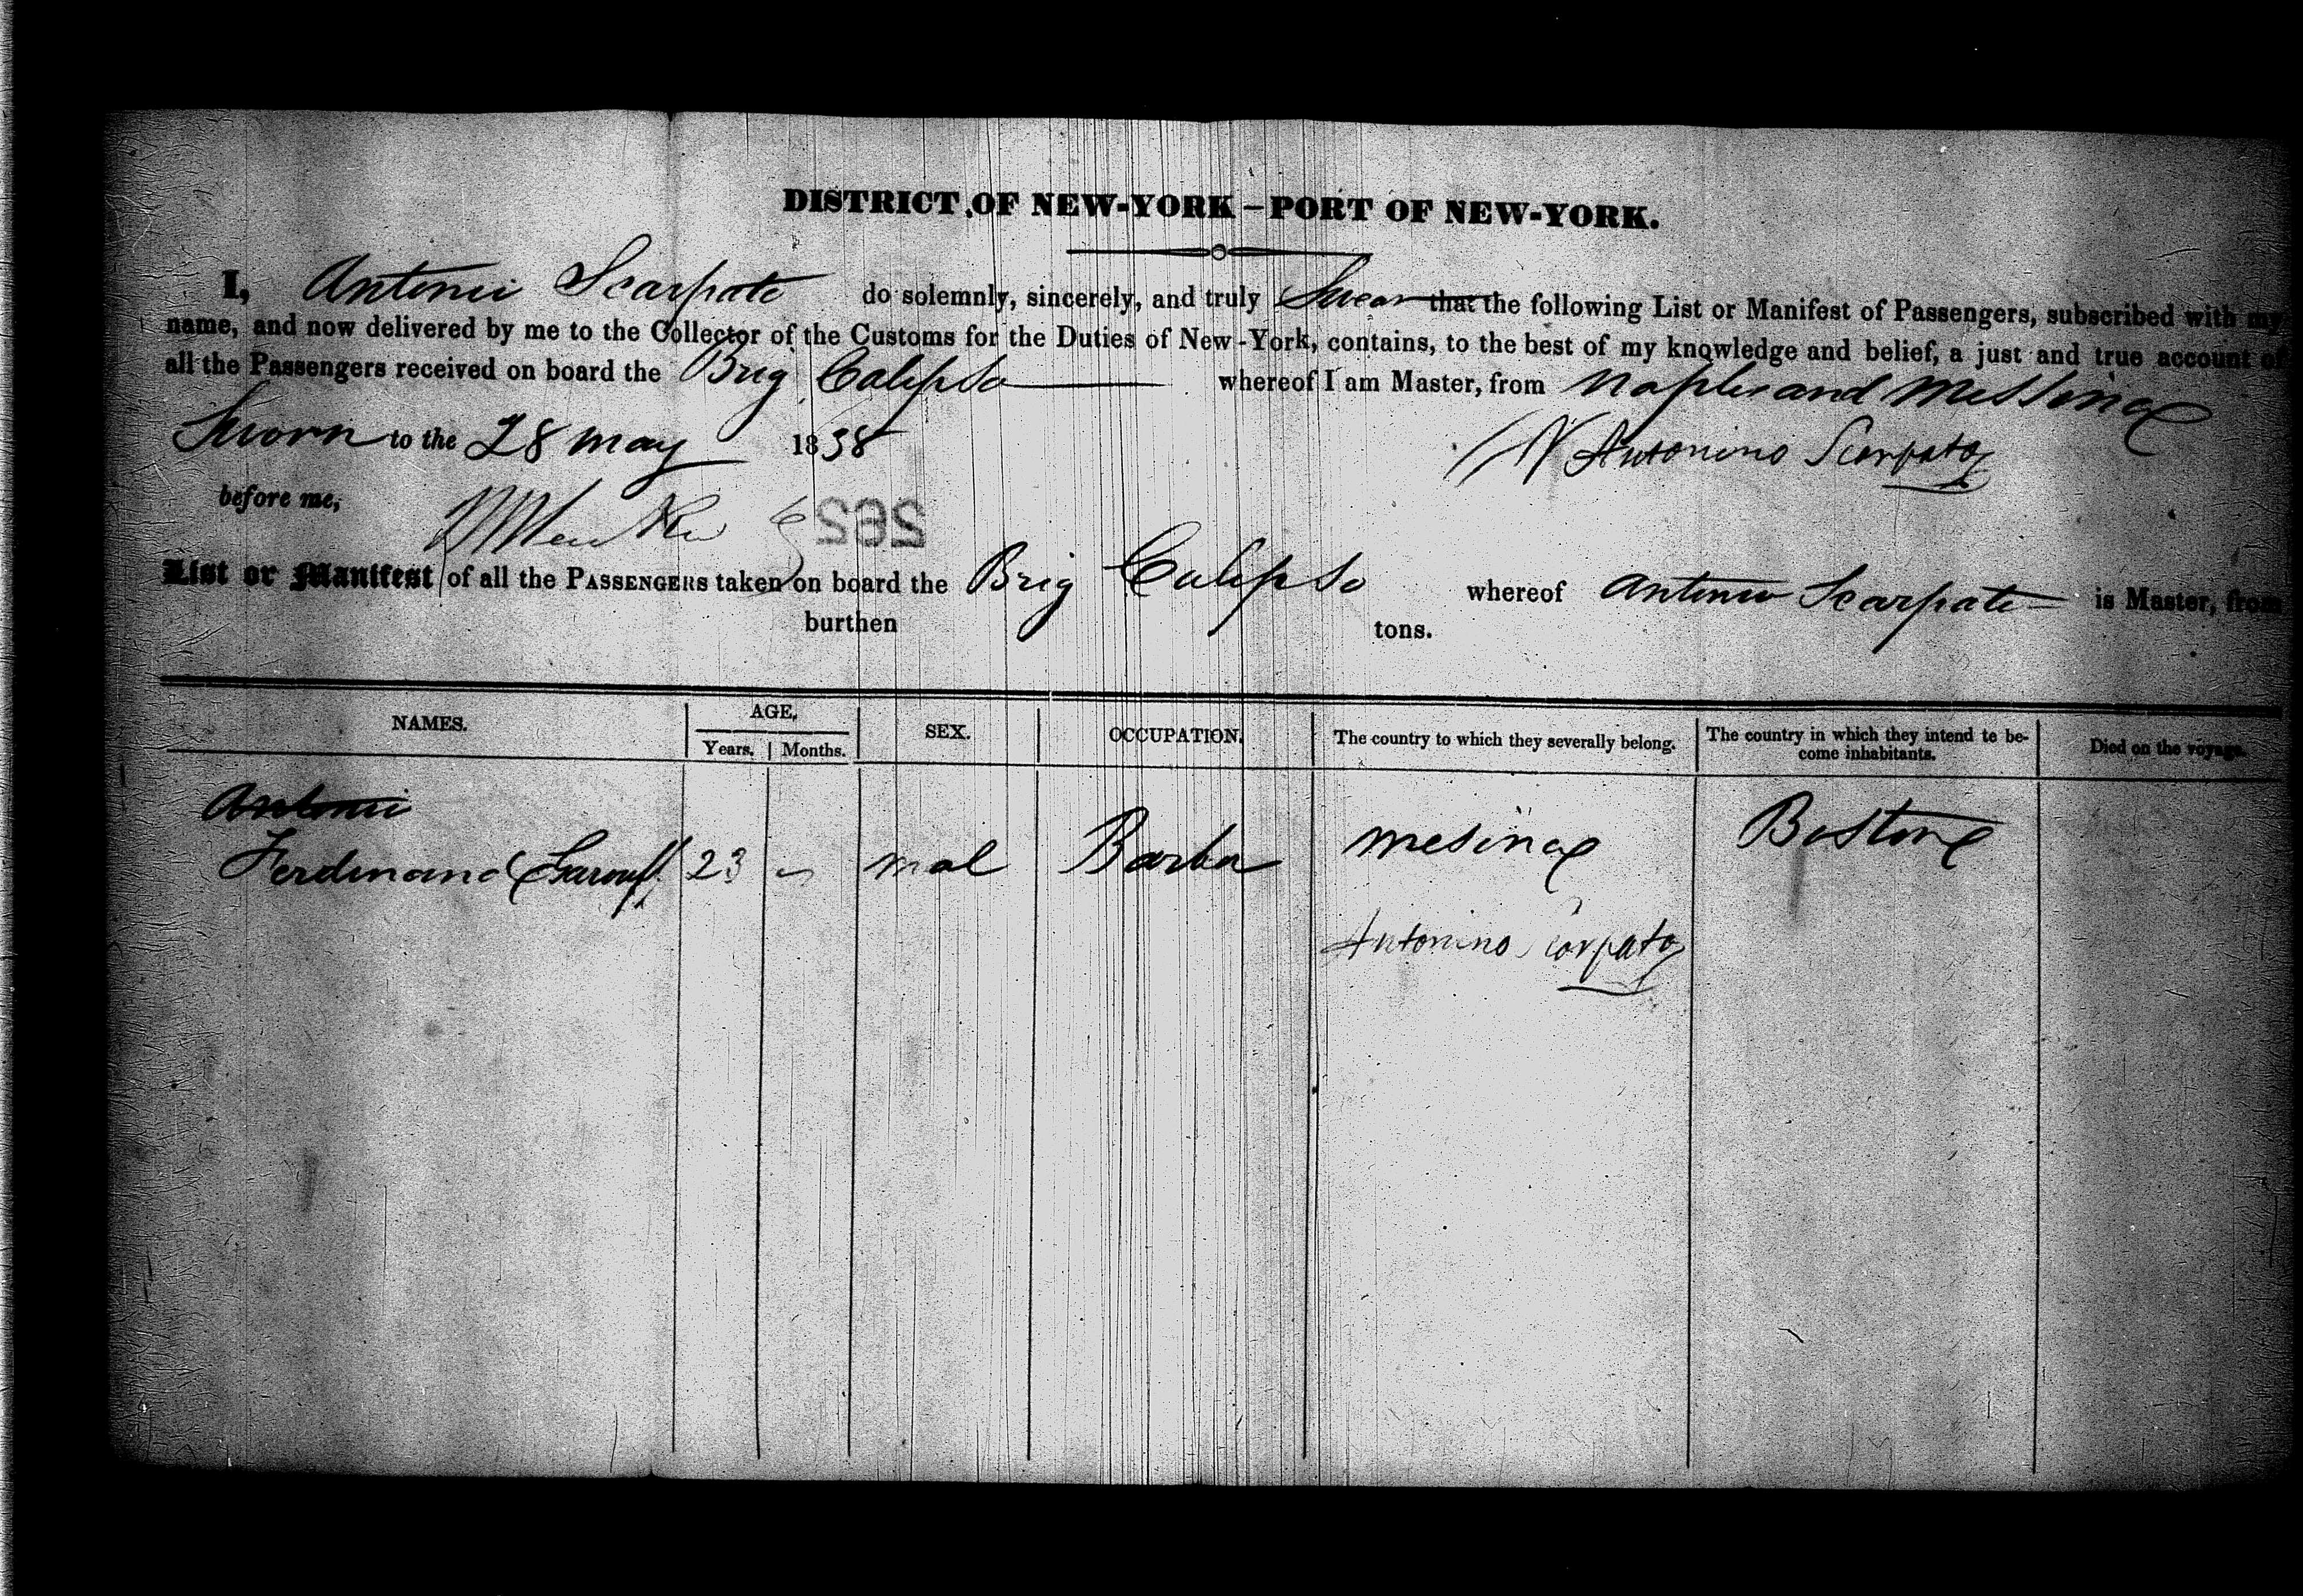 DISTRICT OF NEW-YORK – PORT OF NEW-YORK.
I, Antonii Scarpato do solemnly, sincerely, and truly Swear that the following List or Manifest of Passengers, subscribed with my
name, and now delivered by me to the Collector of the Customs for the Duties of New-York, contains, to the best of my knowledge and belief, a just and true account of
all the Passengers received on board the Brig Calipso whereof I am Master, from Naples and Messina
Sworn to the 28 may 1838
Antonino Scarpato
before me,
List or Manifest of all the PASSENGERS taken on board the Brig Calipso whereof Antonio Scarpato is Master, from
burthen tons.
NAMES. AGE, SEX. OCCUPATION. The country to which they severally belong. The country in which they intend to be-
come inhabitants. Died on the voyage.
Years. Months.
Antonii
Ferdinand 23 mal Barber mesina Boston
Antonino Scorpato